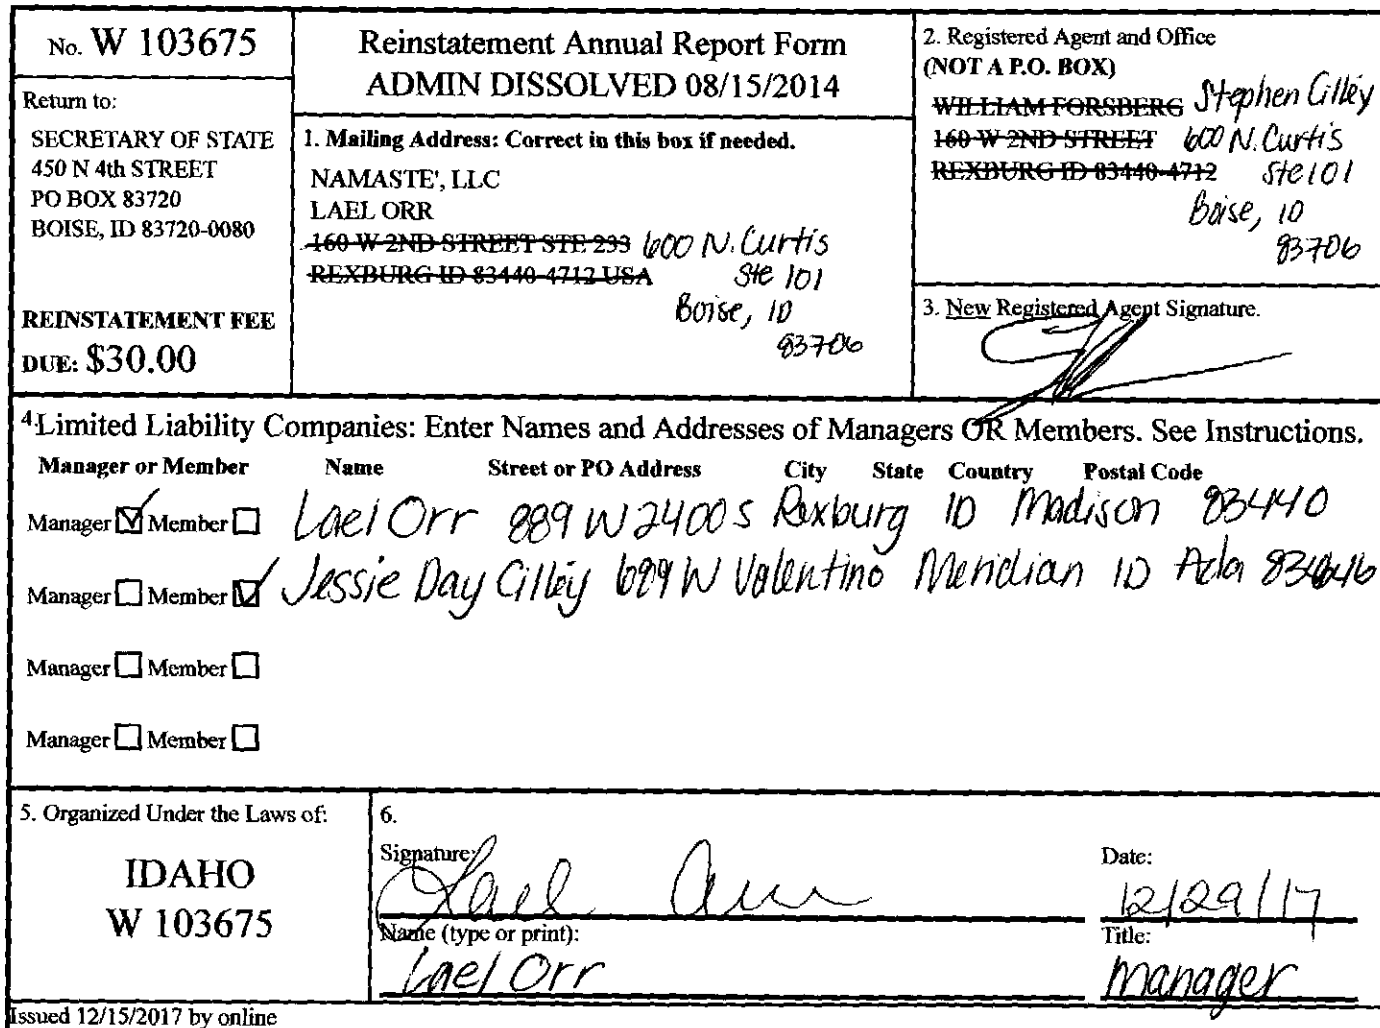 No. W 103675
Return to:
SECRETARY OF STATE
450 N 4th STREET
PO BOX 83720
BOISE, ID 83720-0080
REINSTATEMENT FEE
DUE: $30.00
Reinstatement Annual Report Form
ADMIN DISSOLVED 08/15/2014
1. Mailing Address: Correct in this box if needed.
NAMASTE', LLC
LAEL ORR
160 W 2ND STREET STE 233 600 N. Curtis
REXBURG ID 83440-4712 USA Ste 101
Boise, ID
83706
2. Registered Agent and Office
(NOT A P.O. BOX)
WILLIAM FORSBERG Stephen Cilley
160 W 2ND STREET 600 N. Curtis
REXBURG ID 83440-4712 Ste 101
Boise, ID
83706
3. New Registered Agent Signature.
4. Limited Liability Companies: Enter Names and Addresses of Managers OR Members. See Instructions.
Manager or Member Name Street or PO Address City State Country Postal Code
Manager Member Lael Orr 889 W 2400 S Rexburg ID Madison 83440
Manager Member Jessie Day Cilley 689 W Valentino Meridian ID Ada 83646
Manager Member
Manager Member
5. Organized Under the Laws of:
IDAHO
W 103675
6.
Signature: Lael Orr
Date:
12/29/17
Name (type or print):
Lael Orr
Title:
manager
Issued 12/15/2017 by online